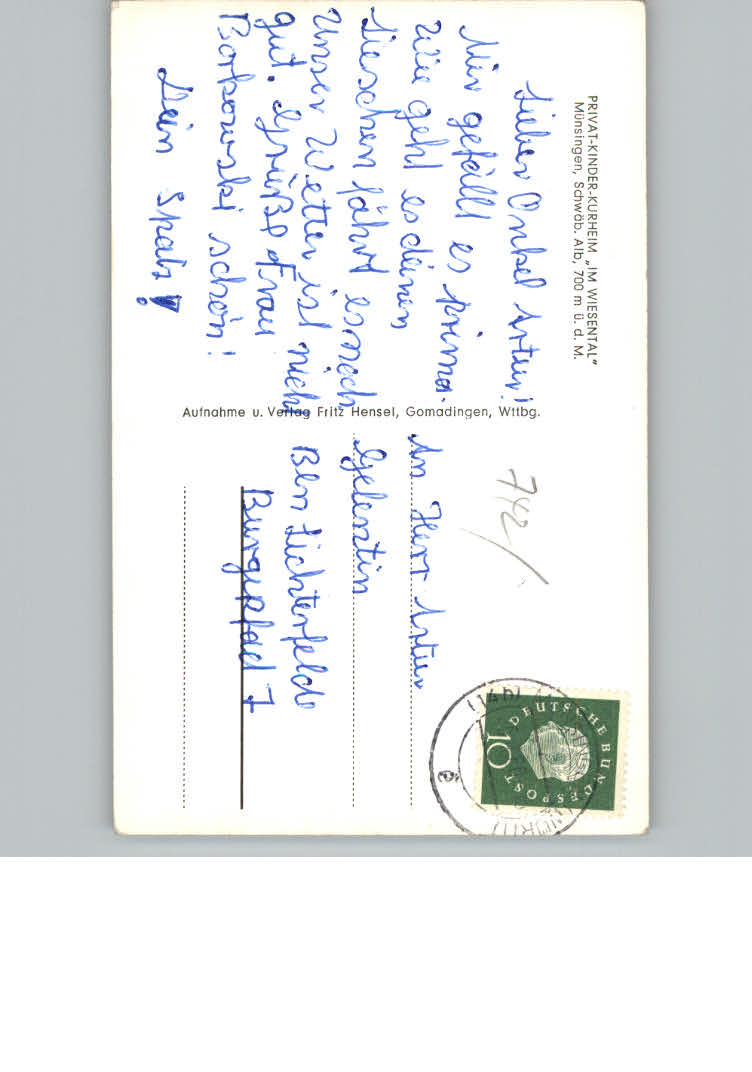 PRIVAT-KINDER-KURHEIM „IM WIESENTAL"
Münsingen, Schwäb. Alb, 700 m ü. d. M.
Lieber Onkel Artur!
Mir gefällt es prima.
Wie geht es deinen
fährt es noch
Unser Wetter ist nicht
gut. Grüße Frau
Borkowski schön!
Dein Spatz!
Aufnahme u. Verlag Fritz Hensel, Gomadingen, Wttbg.
742/
An Herr Artur
Gelentin
Bln Lichterfelde
Burgerpfad 7
DEUTSCHE BUNDESPOST
10
a